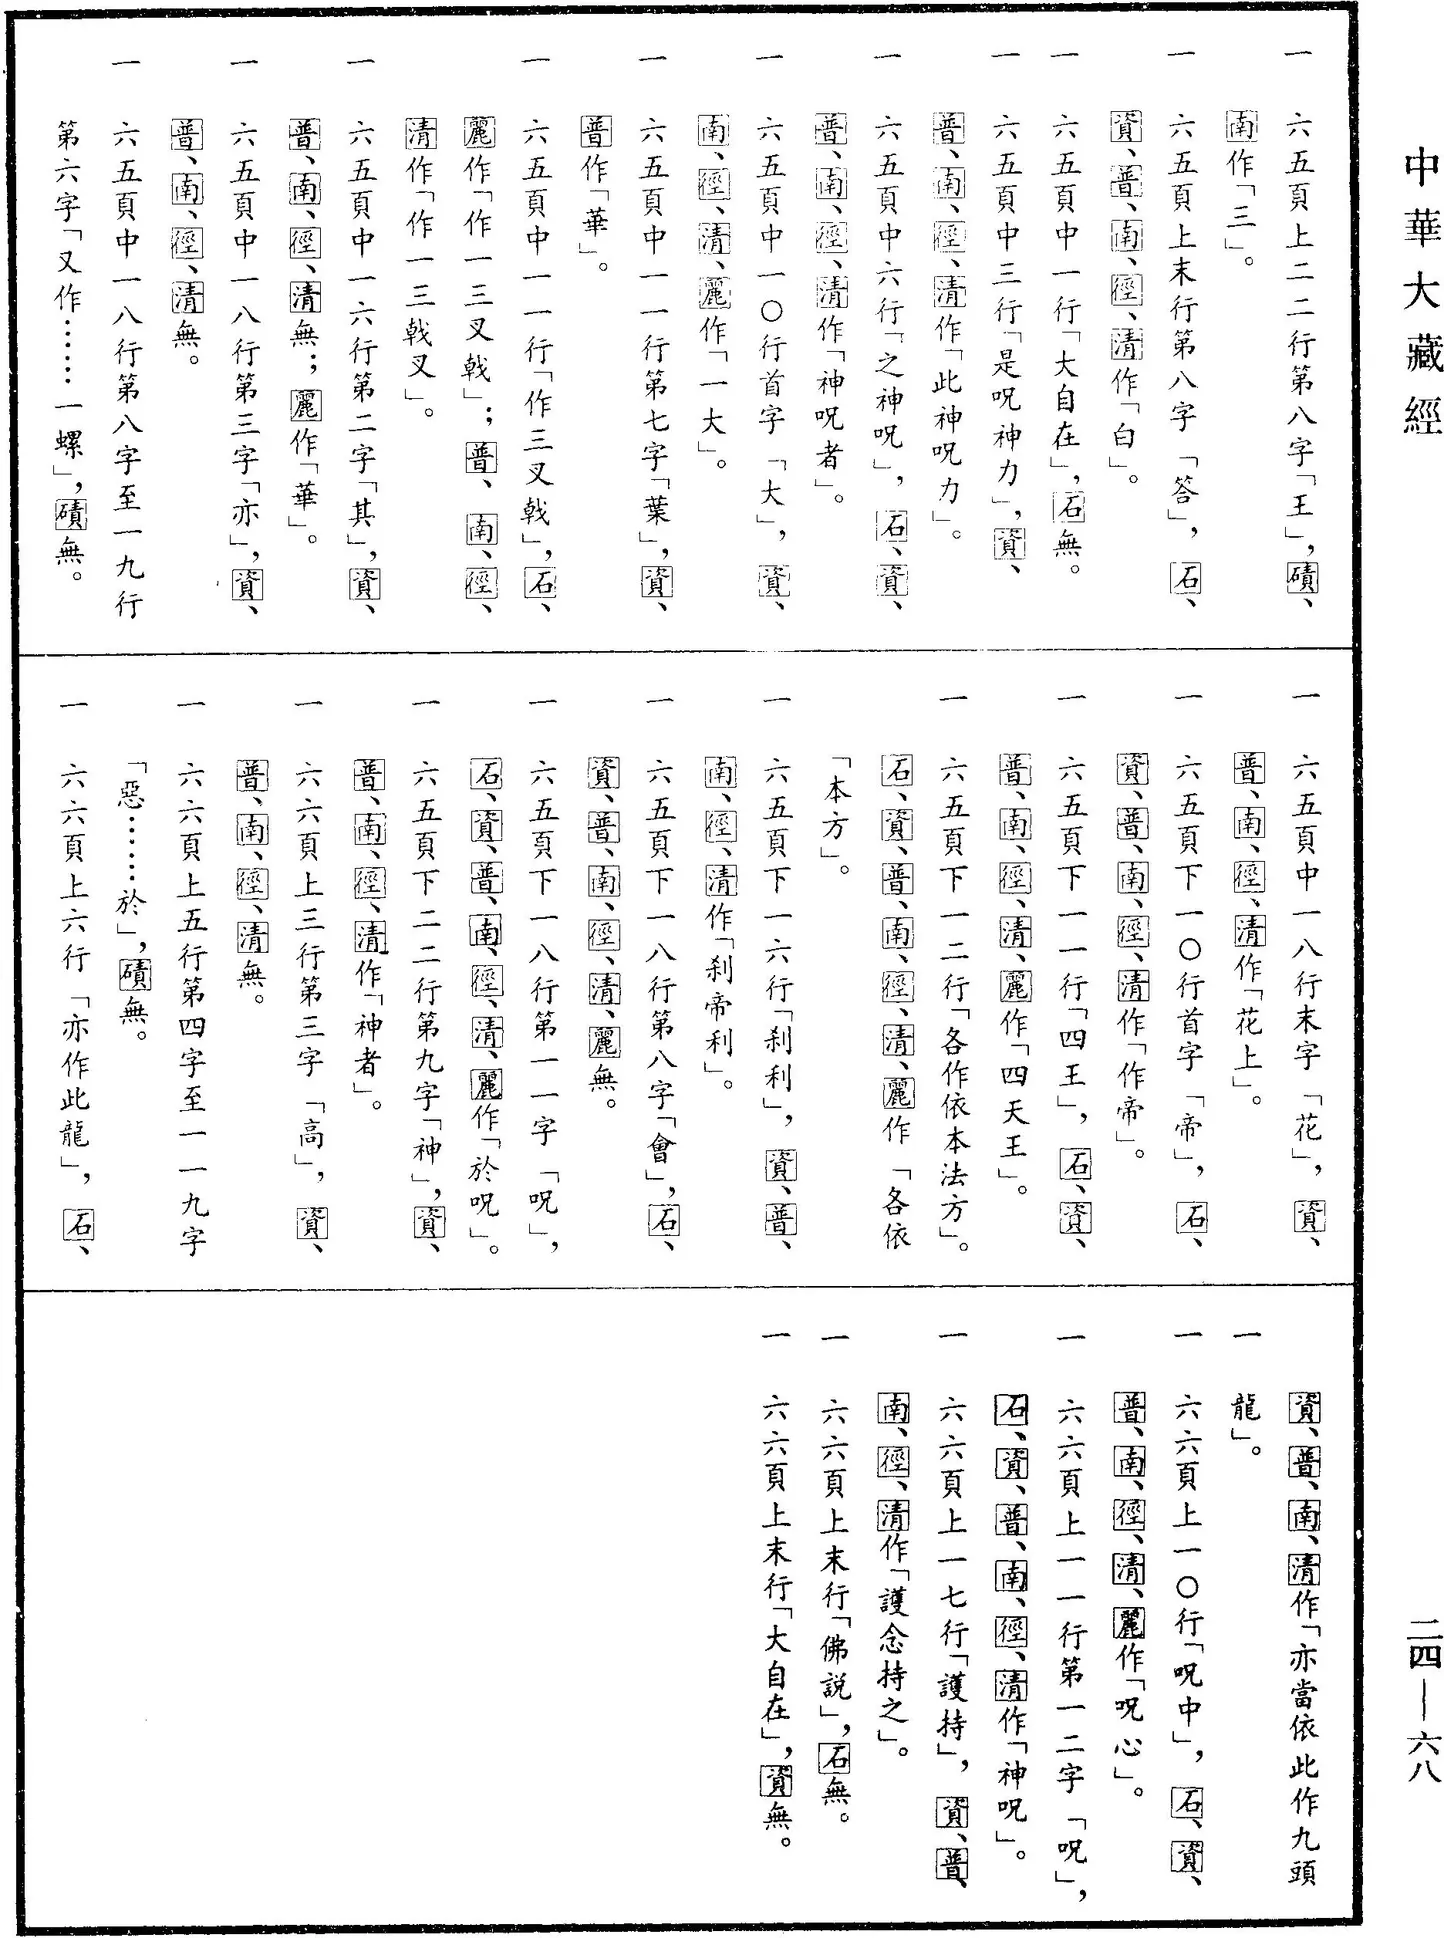 中華大藏經
一 六五頁上二二行第八字「王」，磧、
南作「三」。
一 六五頁上末行第八字「答」，石、
資、普、南、徑、清作「白」。
一 六五頁中一行「大自在」，石無。
一 六五頁中三行「是呪神力」，資、
普、南、徑、清作「此神呪力」。
一 六五頁中六行「之神呪」，石、資、
普、南、徑、清作「神呪者」。
一 六五頁中一〇行首字「大」，資、
南、徑、清、麗作「一大」。
一 六五頁中一一行第七字「葉」，資、
普作「華」。
一 六五頁中一一行「作三叉戟」，石、
麗作「作一三叉戟」；普、南、徑、
清作「作一三戟叉」。
一 六五頁中一六行第二字「其」，資、
普、南、徑、清無；麗作「華」。
一 六五頁中一八行第三字「亦」，資、
普、南、徑、清無。
一 六五頁中一八行第八字至一九行
第六字「又作……一螺」，磧無。
一 六五頁中一八行末字「花」，資、
普、南、徑、清作「花上」。
一 六五頁下一〇行首字「帝」，石、
資、普、南、徑、清作「作帝」。
一 六五頁下一一行「四王」，石、資、
普、南、徑、清、麗作「四天王」。
一 六五頁下一二行「各作依本法方」。
石、資、普、南、徑、清、麗作「各依
本方」。
一 六五頁下一六行「剎利」，資、普、
南、徑、清作「剎帝利」。
一 六五頁下一八行第八字「會」，石、
資、普、南、徑、清、麗無。
一 六五頁下一八行第一一字「呪」，
石、資、普、南、徑、清、麗作「於呪」。
一 六五頁下二二行第九字「神」，資、
普、南、徑、清作「神者」。
一 六六頁上三行第三字「高」，資、
普、南、徑、清無。
一 六六頁上五行第四字至一一九字
「惡……於」，磧無。
一 六六頁上六行「亦作此龍」，石、
資、普、南、清作「亦當依此作九頭
一 龍」。
一 六六頁上一〇行「呪中」，石、資、
普、南、徑、清、麗作「呪心」。
一 六六頁上一一行第一二字「呪」，
石、資、普、南、徑、清作「神呪」。
一 六六頁上一七行「護持」，資、普、
南、徑、清作「護念持之」。
一 六六頁上末行「佛説」，石無。
一 六六頁上末行「大自在」，資無。
二四—六八